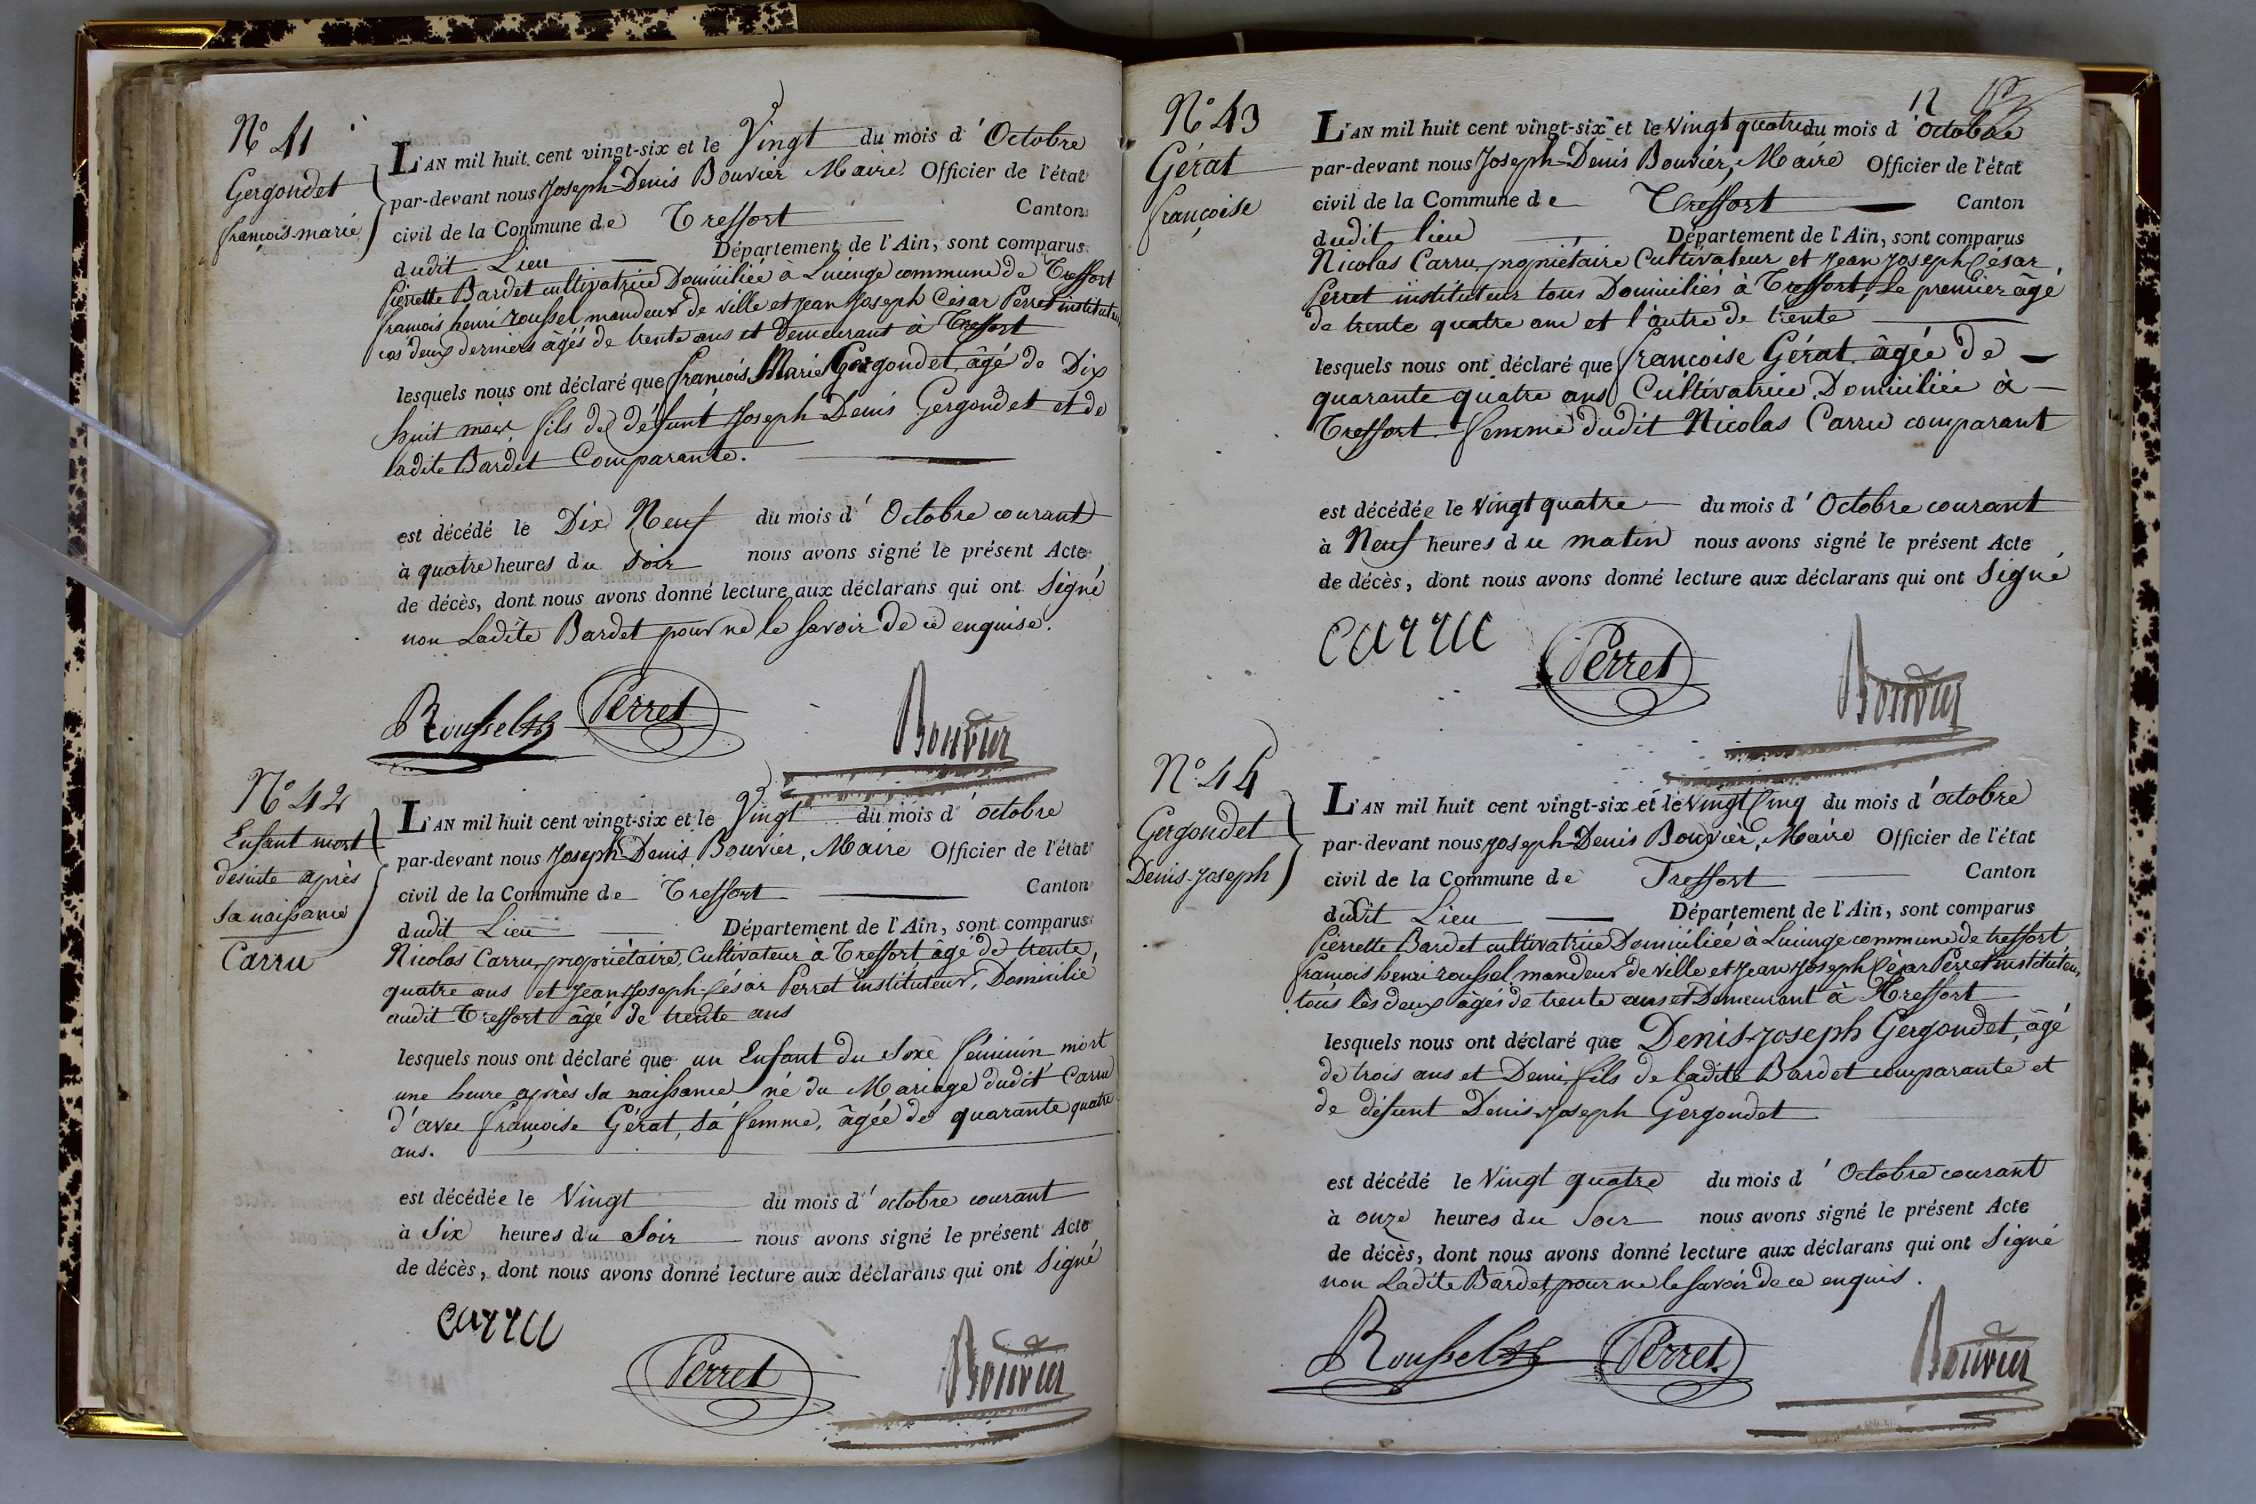 N° 41
Gergondet
françois-marie
L'AN mil huit cent vingt-six et le Vingt du mois d'Octobre
par-devant nous Joseph-Denis Bouvier Maire Officier de l'état
civil de la Commune de Treffort Canton
dudit Lieu Département de l'Ain, sont comparus
Pierrette Bardet cultivatrice Domiciliée à Lucinge commune de Treffort
françois henri roussel mandeur de ville et jean Joseph César Perret instituteur
ces deux derniers âgés de trente ans et Demeurant à Treffort
lesquels nous ont déclaré que françois Marie Gergondet, âgé de Dix
huit mois, fils de défunt Joseph Denis Gergondet et de
ladite Bardet Comparante.
est décédé le Dix Neuf du mois d'Octobre courant
à quatre heures du soir nous avons signé le présent Acte
de décès, dont nous avons donné lecture aux déclarans qui ont Signé
non Ladite Bardet pour ne le savoir de ce enquise.
Roussel Perret Bouvier
N° 42
Enfant mort
desuite après
sa naissance
Carru
L'AN mil huit cent vingt-six et le Vingt du mois d'octobre
par-devant nous Joseph-Denis Bouvier, Maire Officier de l'état
civil de la Commune de Treffort Canton
dudit Lieu Département de l'Ain, sont comparus
Nicolas Carru, propriétaire, Cultivateur à Treffort âgé de trente
quatre ans et Jean Joseph-César Perret instituteur, Domicilié
audit Treffort âgé de trente ans
lesquels nous ont déclaré que un Enfant du Sexe féminin, mort
une heure après sa naissance né du Mariage dudit Carru
d'avec françoise Gérat, sa femme, âgée de quarante quatre
ans.
est décédée le Vingt du mois d'octobre courant
à Six heures du Soir nous avons signé le présent Acte
de décès, dont nous avons donné lecture aux déclarans qui ont Signé
carru Perret Bouvier
12
N° 43
Gérat
françoise
L'AN mil huit cent vingt-six et le Vingt quatre du mois d'octobre
par-devant nous Joseph-Denis Bouvier, Maire Officier de l'état
civil de la Commune de Treffort Canton
dudit lieu Département de l'Ain, sont comparus
Nicolas Carru, propriétaire Cultivateur et Jean Joseph César
Perret instituteur tous Domiciliés à Treffort, Le premier âgé
de trente quatre ans et l'autre de trente
lesquels nous ont déclaré que françoise Gérat âgée de
quarante quatre ans Cultivatrice, Domiciliée à
Treffort femme dudit Nicolas Carru comparant
est décédée le Vingt quatre du mois d'Octobre courant
à Neuf heures du matin nous avons signé le présent Acte
de décès, dont nous avons donné lecture aux déclarans qui ont Signé
carru Perret Bouvier
N° 44
Gergondet
Denis-Joseph
L'AN mil huit cent vingt-six et le Vingt Cinq du mois d'octobre
par-devant nous Joseph-Denis Bouvier, Maire Officier de l'état
civil de la Commune de Treffort Canton
dudit Lieu Département de l'Ain, sont comparus
Pierrette Bardet cultivatrice Domiciliée à Lucinge commune de treffort
françois henri roussel, mandeur de ville et Jean Joseph César Perret instituteur,
tous les deux âgés de trente ans et Demeurant à Treffort
lesquels nous ont déclaré que Denis-Joseph Gergondet, âgé
de trois ans et Demi, fils de ladite Bardet comparante et
de défunt Denis Joseph Gergondet
est décédé le Vingt quatre du mois d'Octobre courant
à onze heures du Soir nous avons signé le présent Acte
de décès, dont nous avons donné lecture aux déclarans qui ont Signé
non Ladite Bardet pour ne le savoir de ce enquis.
Roussel Perret Bouvier